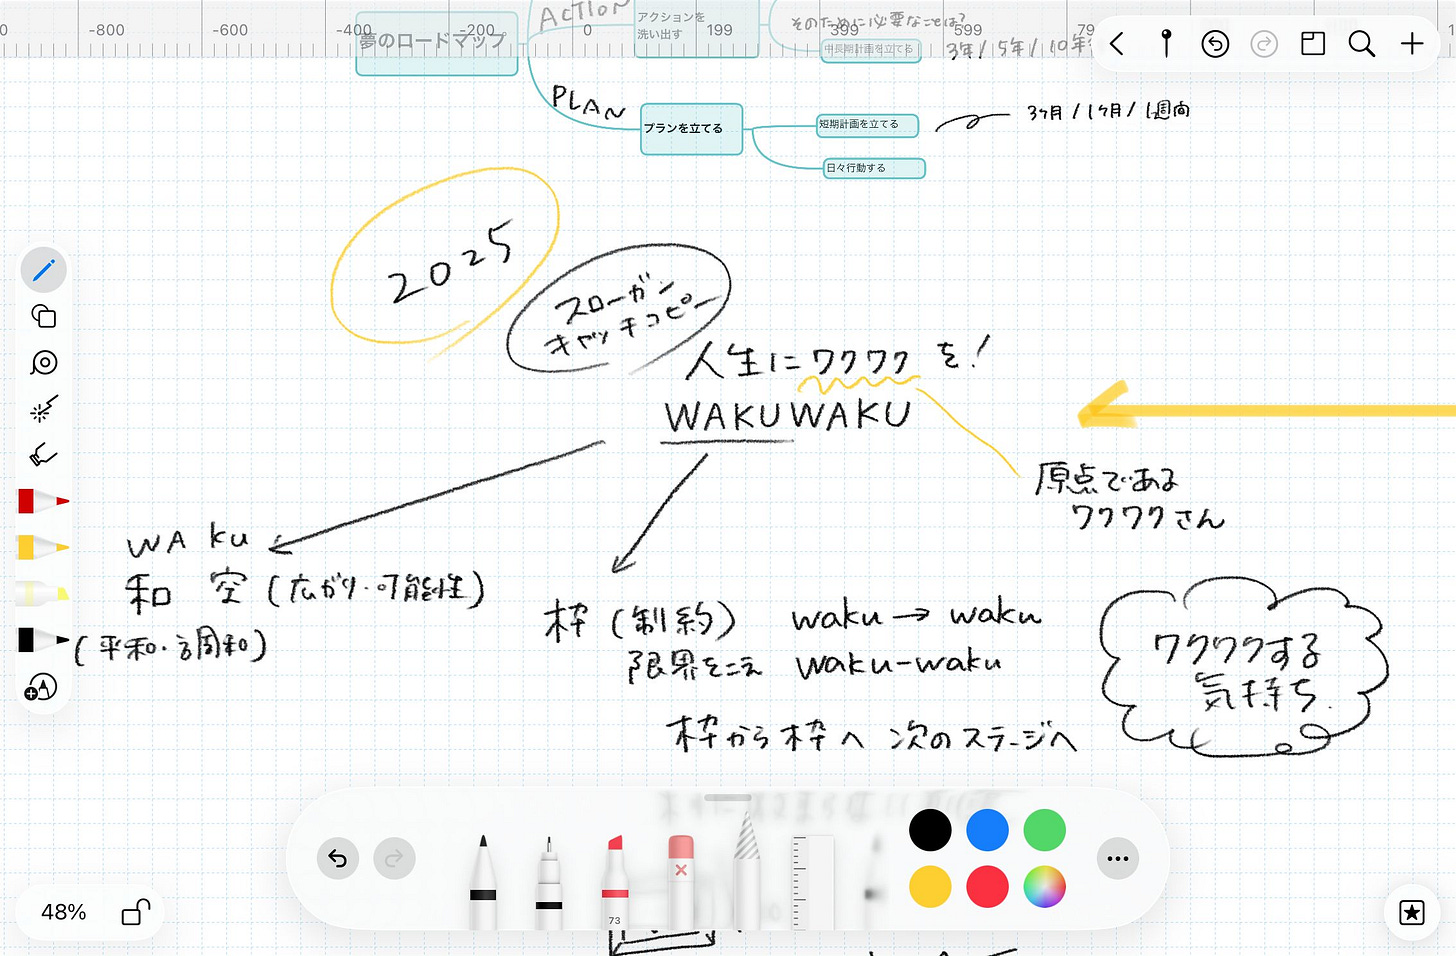 ACTION
アクションを
洗い出す
そのために必要なことは?
0 -800 -600 -400 -200 0 199 399 599
夢のロードマップ
中長期計画を立てる
3年/5年/10年
PLAN
プランを立てる
短期計画を立てる
3ヶ月/1ヶ月/1週間
日々行動する
2025
スローガン
キャッチコピー
人生にワクワクを!
WAKUWAKU
原点である
ワクワクさん
WA Ku
和 空(広がり・可能性)
(平和・調和)
枠(制約) waku→waku
限界をこえ waku-waku
枠から枠へ 次のステージへ
ワクワクする
気持ち
73
48%